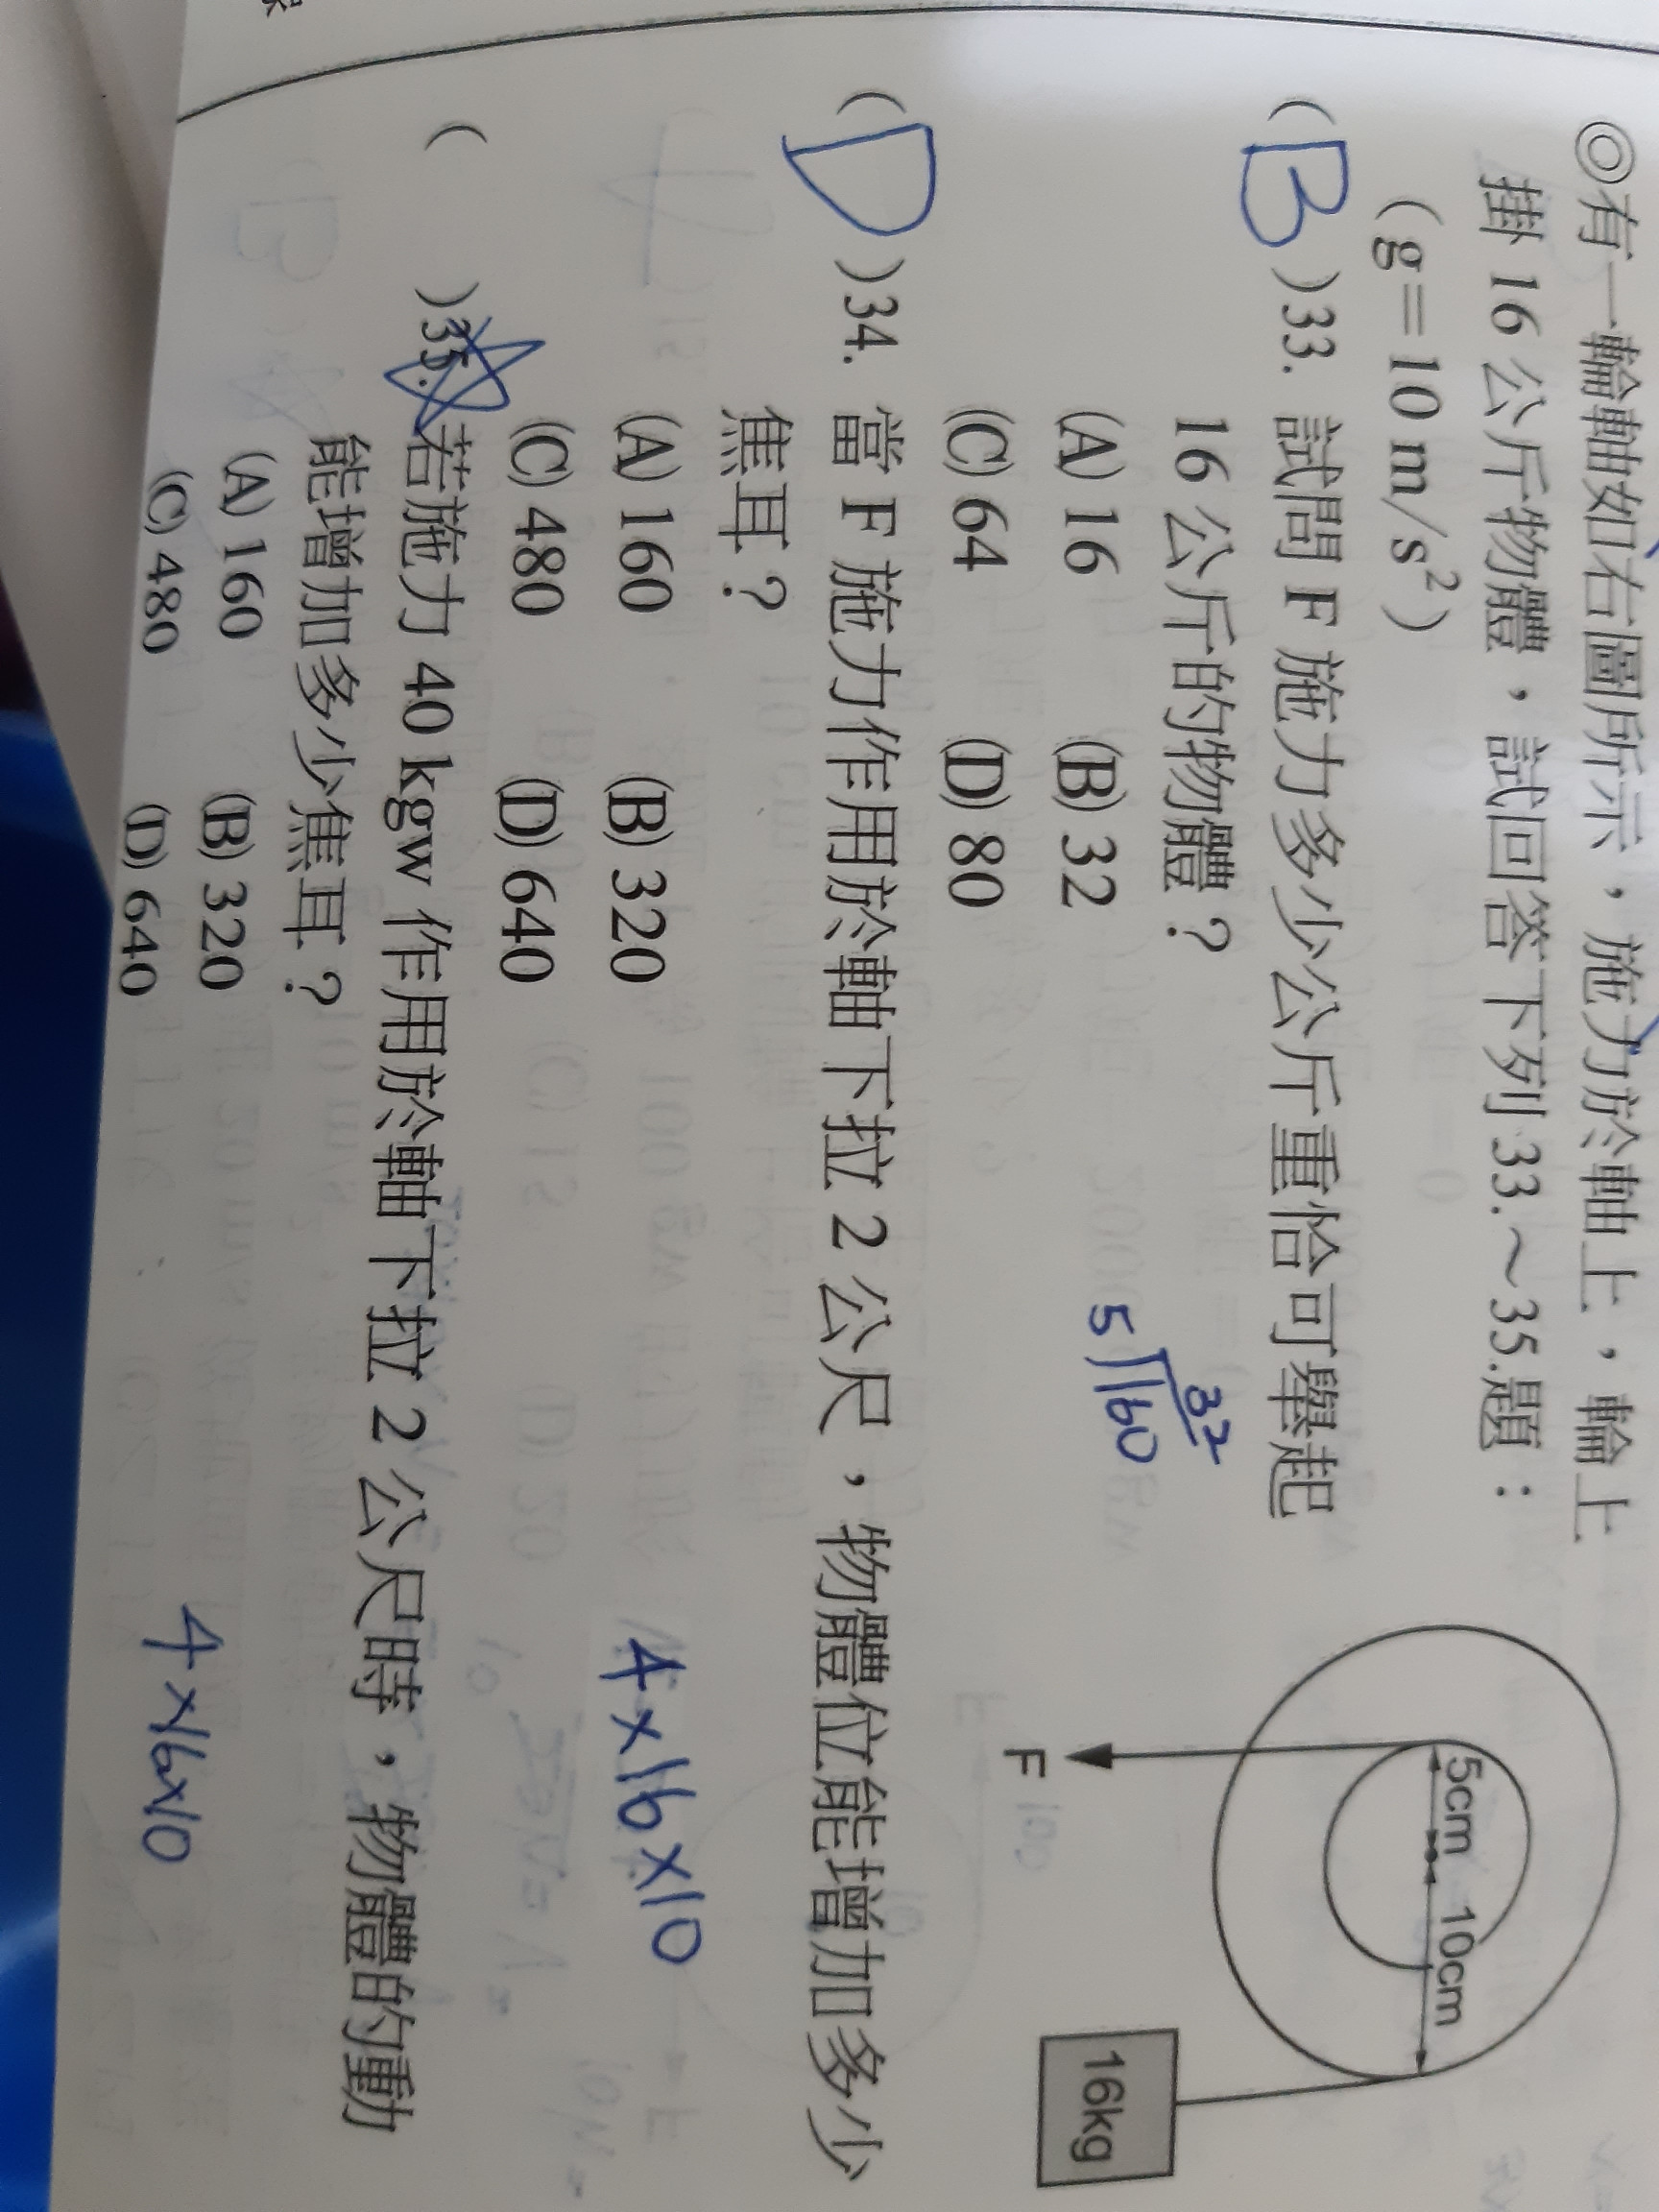 ◎有一輪軸如右圖所示，施力於軸上，輪上
掛 16 公斤物體，試回答下列 33.～35.題：
（g＝10 m/s²）
( B )33. 試問 F 施力多少公斤重恰可舉起
16 公斤的物體？
(A) 16 (B) 32
(C) 64 (D) 80
32
5 160
5cm 10cm
F
16kg
( D )34. 當 F 施力作用於軸下拉 2 公尺，物體位能增加多少
焦耳？
(A) 160 (B) 320
(C) 480 (D) 640
4×16×10
( )35. 若施力 40 kgw 作用於軸下拉 2 公尺時，物體的動
能增加多少焦耳？
(A) 160 (B) 320
(C) 480 (D) 640
4×16×10